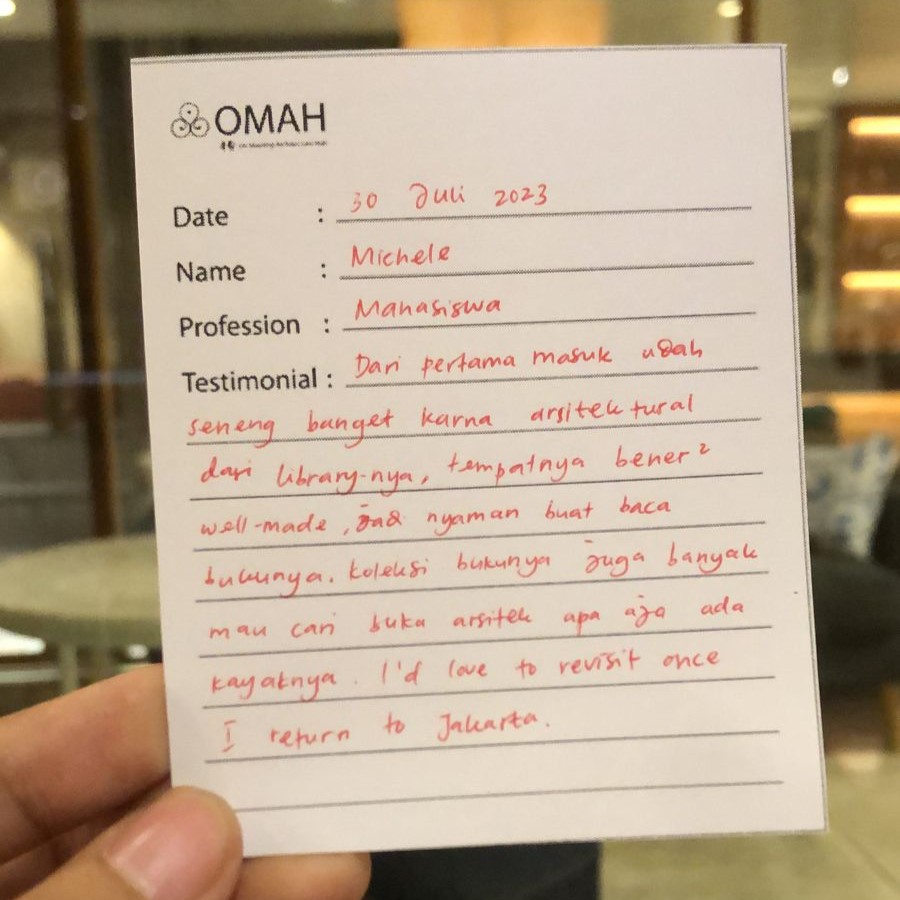 OMAH
Date : 30 Juli 2023
Name : Michele
Profession : Mahasiswa
Testimonial : Dari pertama masuk udah
seneng banget karna arsitektural
dari library-nya, tempatnya bener²
well-made, jad nyaman buat baca
bukunya. Koleksi bukunya juga banyak
mau cari buku arsitek apa aja ada
kayaknya. I'd love to revisit once
I return to Jakarta.